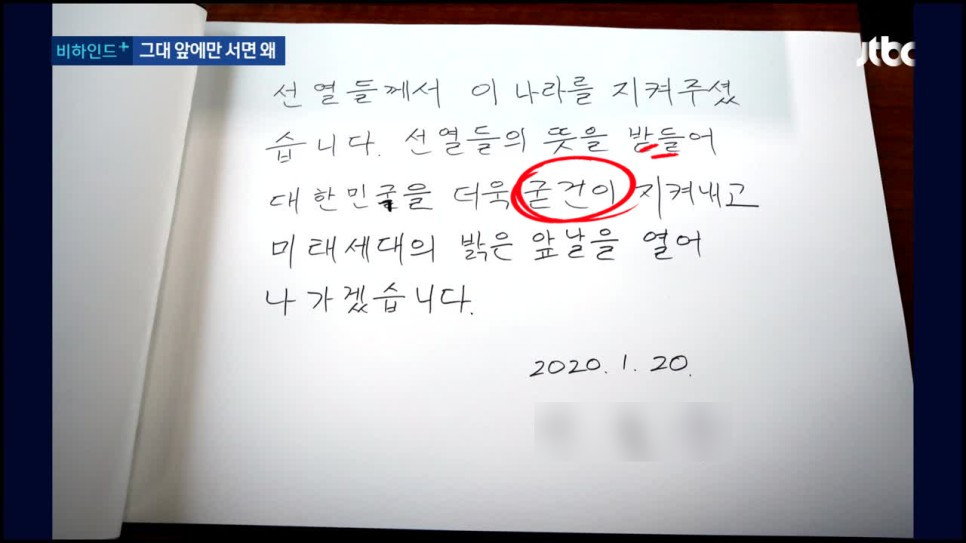 비하인드+ 그대 앞에만 서면 왜
jtbc
선열들께서 이 나라를 지켜주셨
습니다. 선열들의 뜻을 받들어
대한민국을 더욱 굳건이 지켜내고
미래세대의 밝은 앞날을 열어
나가겠습니다.
2020. 1. 20.